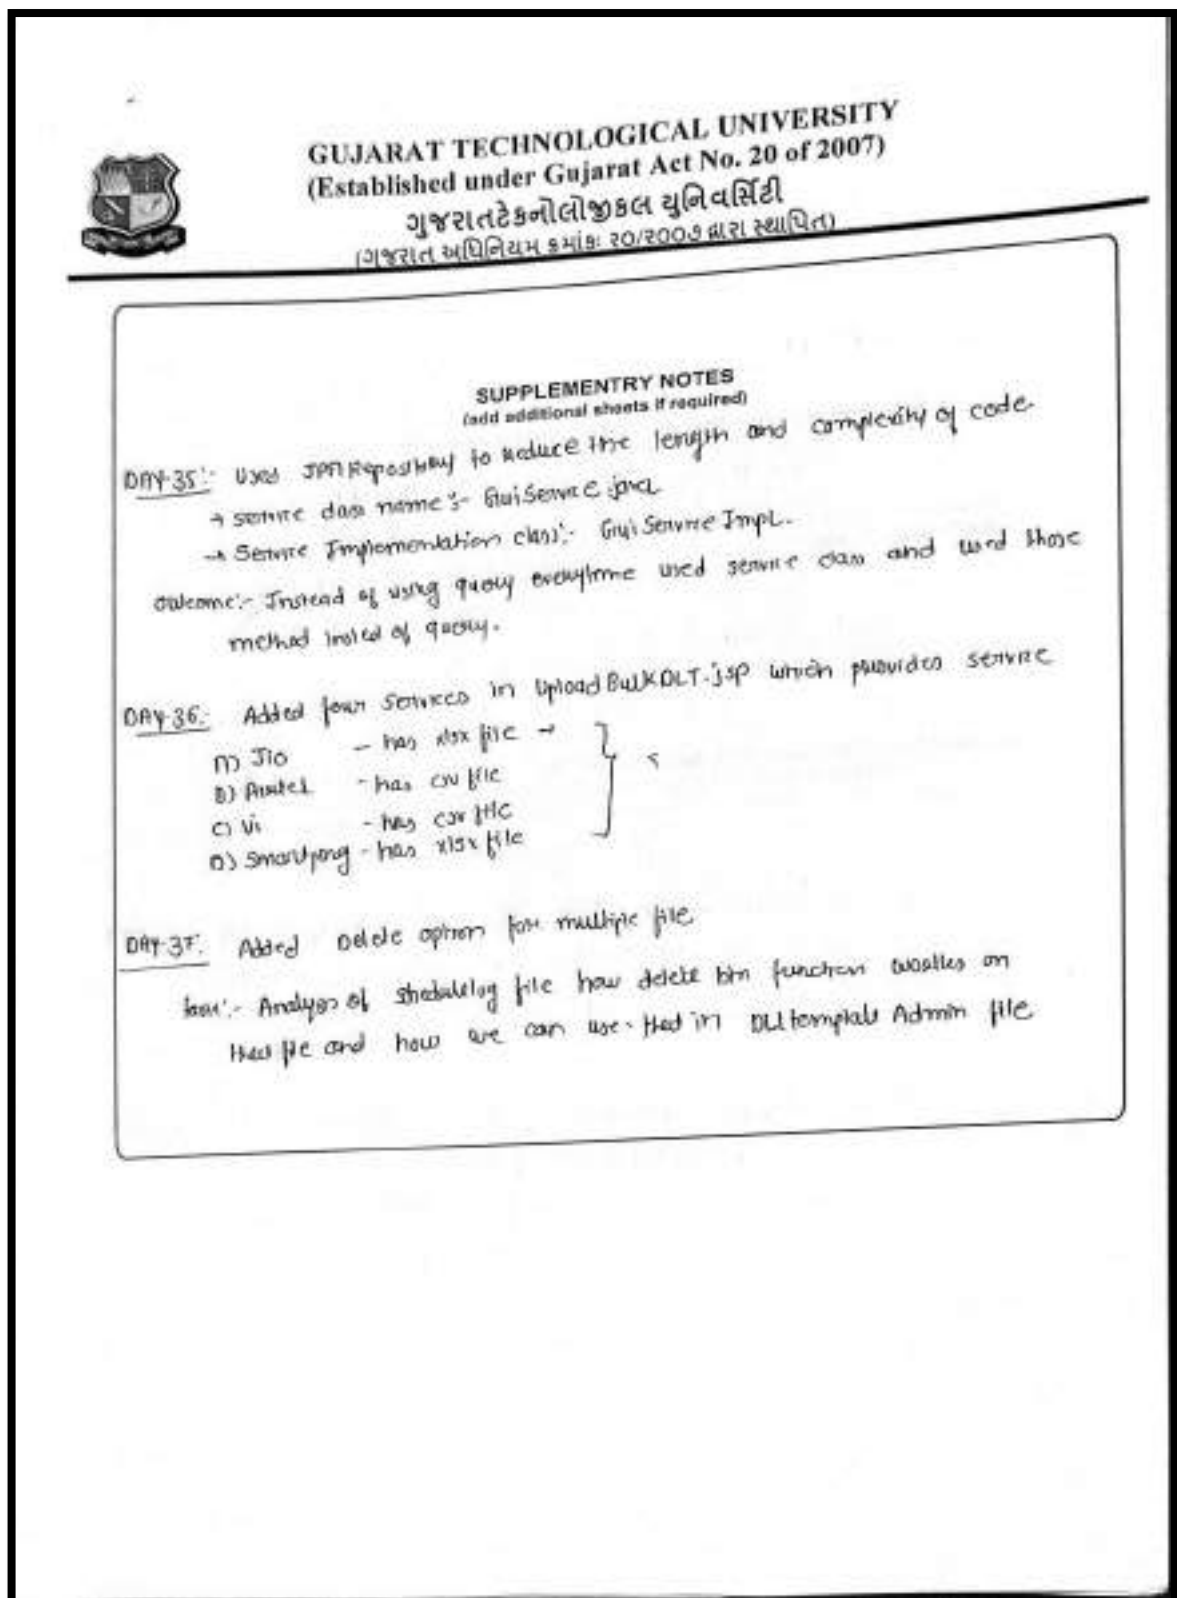 GUJARAT TECHNOLOGICAL UNIVERSITY
(Established under Gujarat Act No. 20 of 2007)
ગુજરાતટેકનોલોજીકલ યુનિવર્સિટી
(ગુજરાત અધિનિયમ ક્રમાંકઃ ૨૦/૨૦૦૭ દ્વારા સ્થાપિત)
SUPPLEMENTRY NOTES
(add additional sheets if required)
DAY-35:- Uses JPA Repository to reduce the length and complexity of code
→ service class name :- GuiService.java
→ Service Implementation class:- Gui Service Impl.
Outcome:- Instead of using query everytime used service class and used those
method insted of query.
DAY-36:- Added four services in Upload BulkDLT.jsp which provides service
A) Jio - has xlsx file
B) Airtel - has csv file
C) Vi - has csv file
D) Smartping - has xlsx file
DAY-37. Added Delete option for multiple file
:- Analysis of file how delete btn function works on
that file and how we can use that in DLTtemplate Admin file